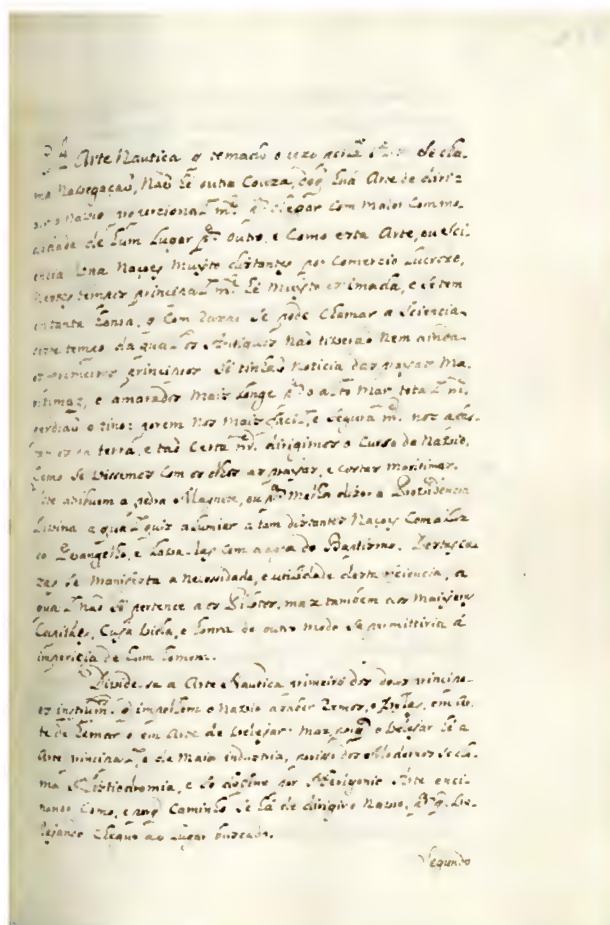 Arte Nautica q tomado o uzo geral Se cha-
ma Navegação, Não hé outra Couza, do q huá Arte de diri-
o Navio proporcionalm.te p.a chegar com maior Commo-
didade de hum Lugar p.a outro, e Como esta Arte, ou sci-
encia Una Naçoẽs Muyto distantes por Comercio Lucroso,
nestes tempos principalm.te hé Muyto estimada, e se tem
em tanta honra, q Com Se pode Chamar a Sciencia
deste tempo da qual os Antiguos Não tiverão Nem ainda
os primeiros principios Se tinhão Noticia das prayas Ma-
ritimas, e amarados Mais Longe p.a o alto Mar, totalm.te
perdião o tino: porem Nos Mais facil, e Seguram.te nos
da terra, e tão Certam.te dirigimos o Curso do Navio,
Como Se Vissemos Com os olhos as prayas, e costas Maritimas.
atribuem a pedra Magnete, ou p.a Melhor dizer a Providencia
Divina a qual quiz alumiar a tam distantes Naçoẽs Com a Luz
do Evangelho, e Lava-las Com a agoa do Baptismo. Destas Cau-
zas Se Manifesta a Necessidade, e utilidade desta sciencia, a
qual Não Só pertence a os Pilotos, mas tambem aos
Capitães, Cuja Vida, e honra de outro modo Se permittiria á
impericia de hum homem.
Divide-se a Arte Nautica primeiro dos dous princip-
es instrum.tos q impellem o Navio a saber Remos, e Velas, em Ar-
te de Remar e em Arte de Velejar: Mas, o Velejar hé a
Arte principal, e de Maior industria, por isso dos Modernos Se cha-
ma Histiodromia, e Arte ensi-
nando Como, e porq Caminho Se há de dirigir o Navio, p.a q Ve-
lejando Chegue ao Lugar buscado.
Segundo